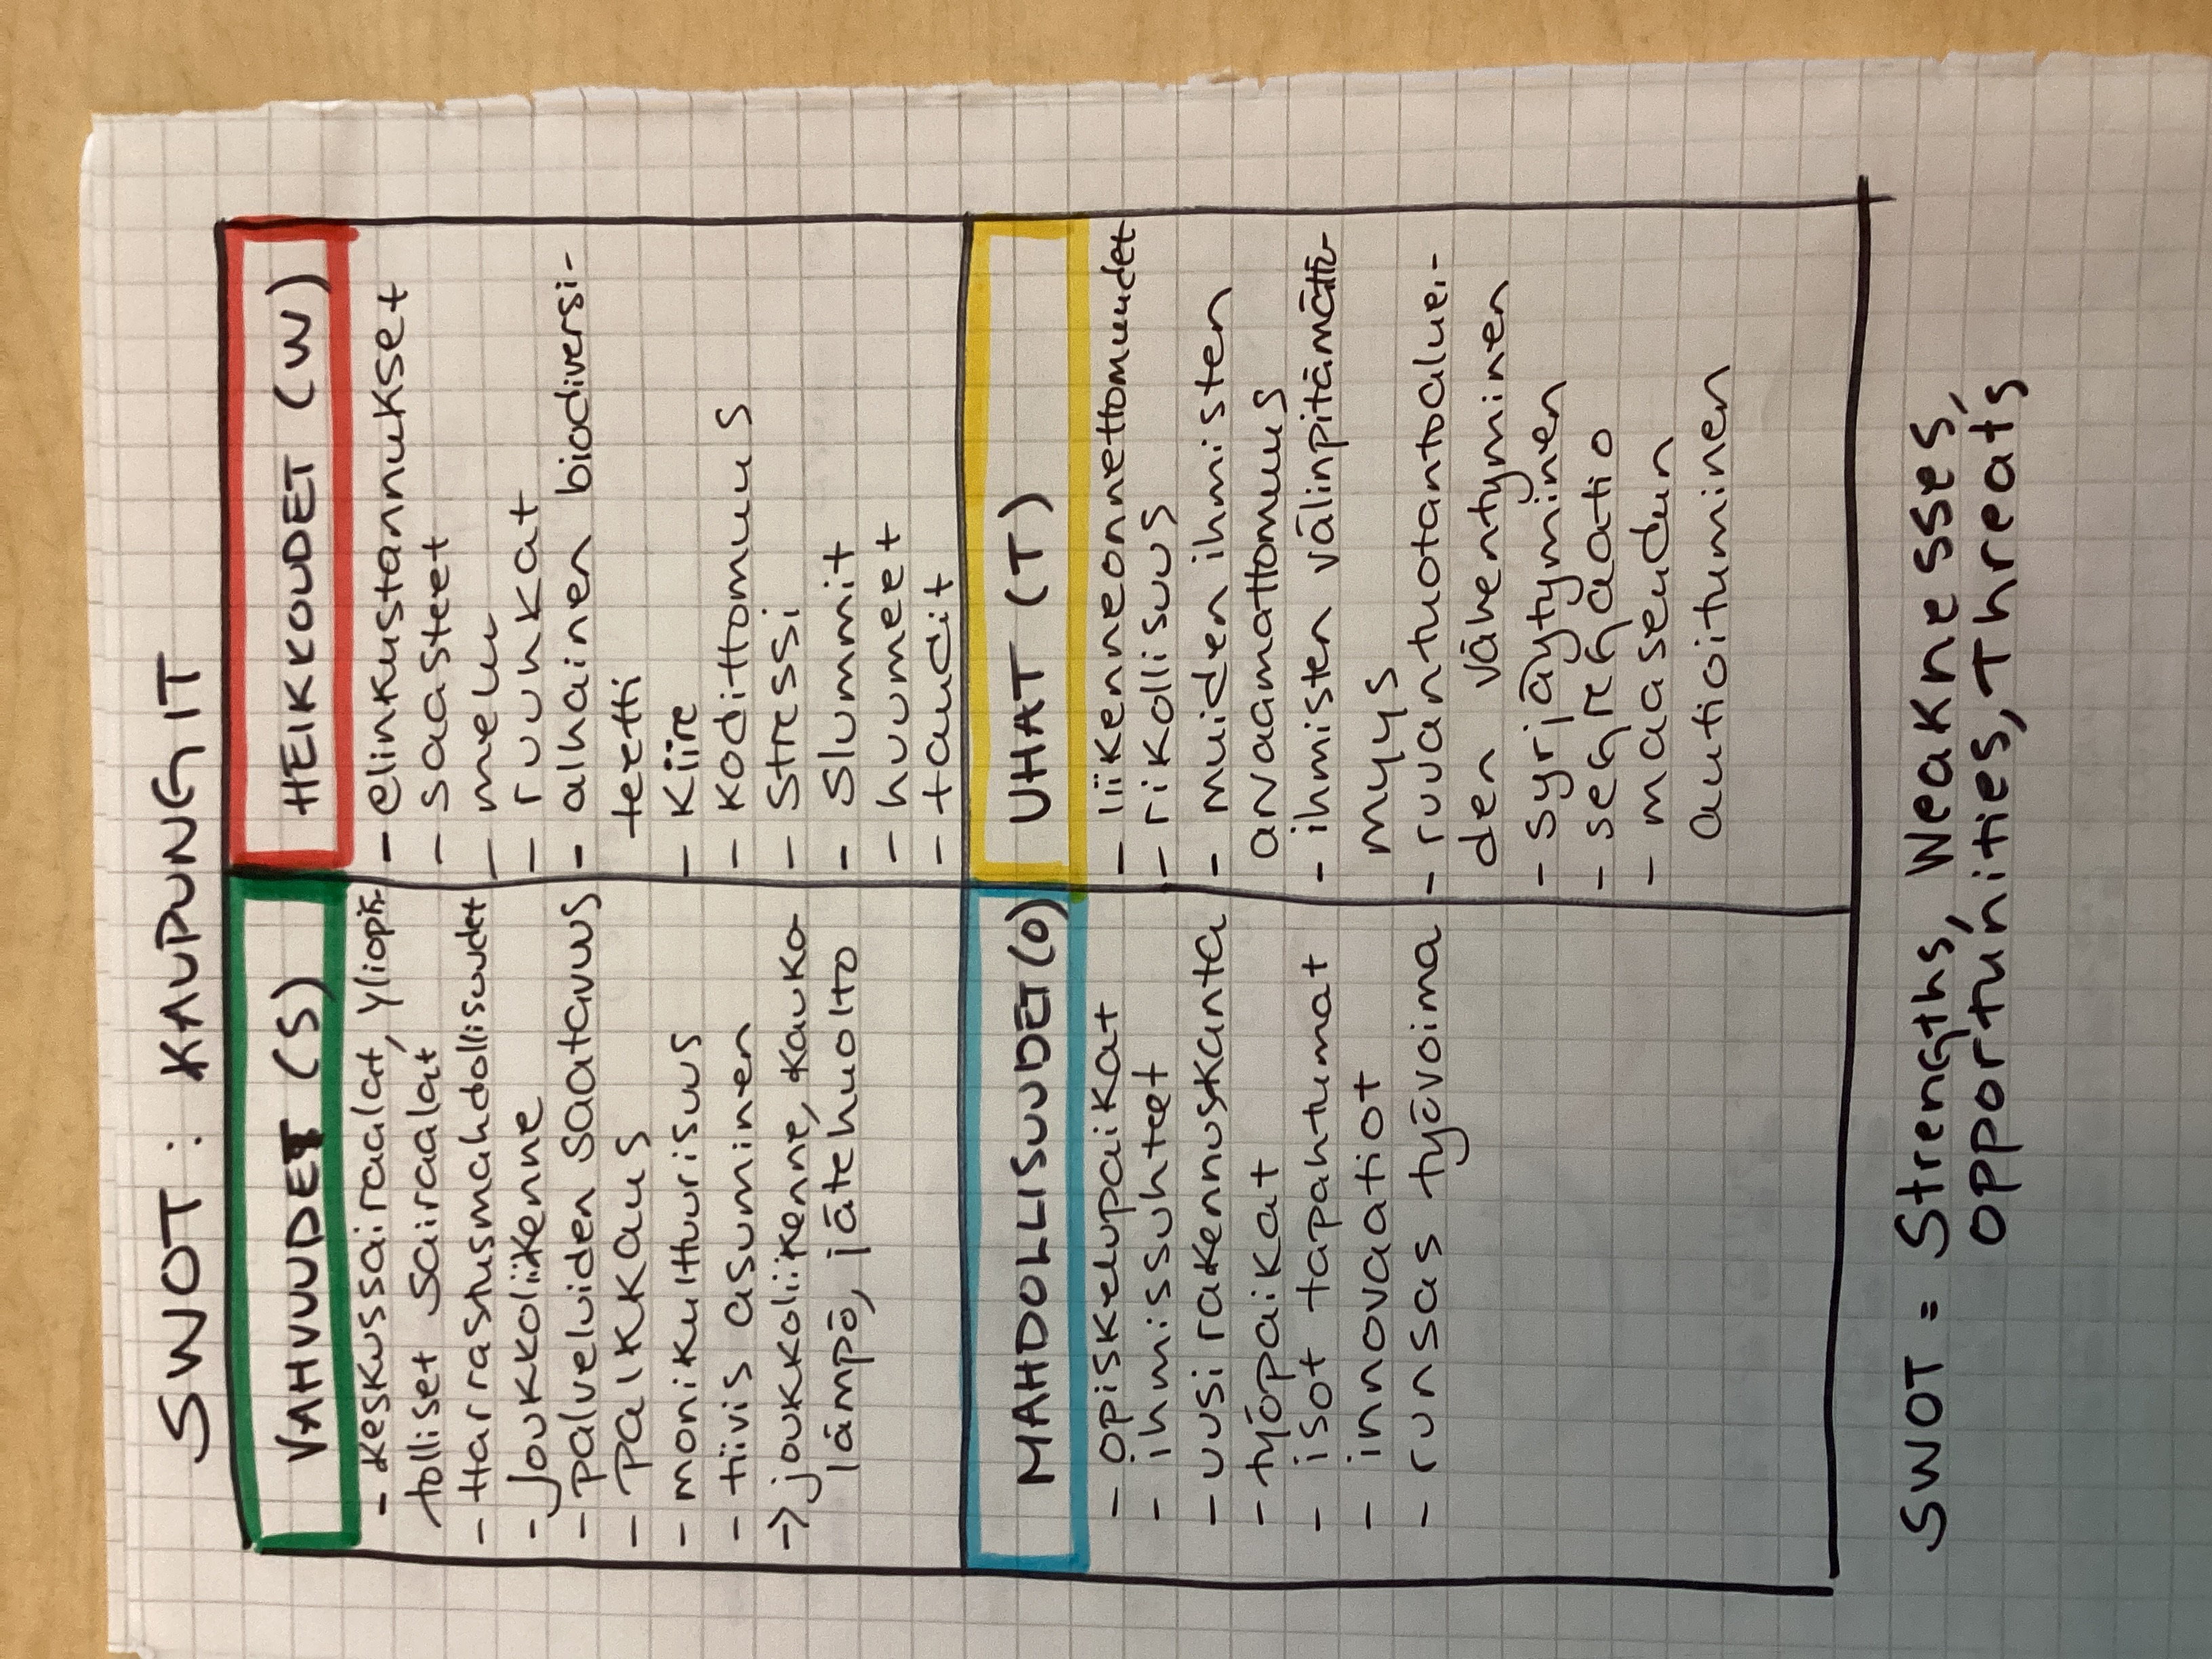 SWOT : KAUPUNGIT
VAHVUUDET (S)
- keskussairaalat, yliopis-
tolliset sairaalat
- Harrastusmahdollisuudet
- Joukkoliikenne
- palveluiden saatavuus
- palkkaus
- monikulttuurisuus
- tiivis asuminen
-> joukkoliikenne, kauko-
lämpö, jätehuolto
HEIKKOUDET (W)
- elinkustannukset
- saasteet
- melu
- ruuhkat
- alhainen biodiversi-
teetti
- Kiire
- kodittomuus
- stressi
- slummit
- huumeet
- taudit
MAHDOLLISUUDET (O)
- opiskelupaikat
- ihmissuhteet
- uusi rakennuskanta
- työpaikat
- isot tapahtumat
- innovaatiot
- runsas työvoima
UHAT (T)
- liikenneonnettomuudet
- rikollisuus
- muiden ihmisten
arvaamattomuus
- ihmisten välinpitämättö-
myys
- ruuantuotantoaluei-
den vähentyminen
- syrjäytyminen
- segregaatio
- maaseudun
autioituminen
SWOT = Strengths, Weaknesses,
Opportunities, Threats